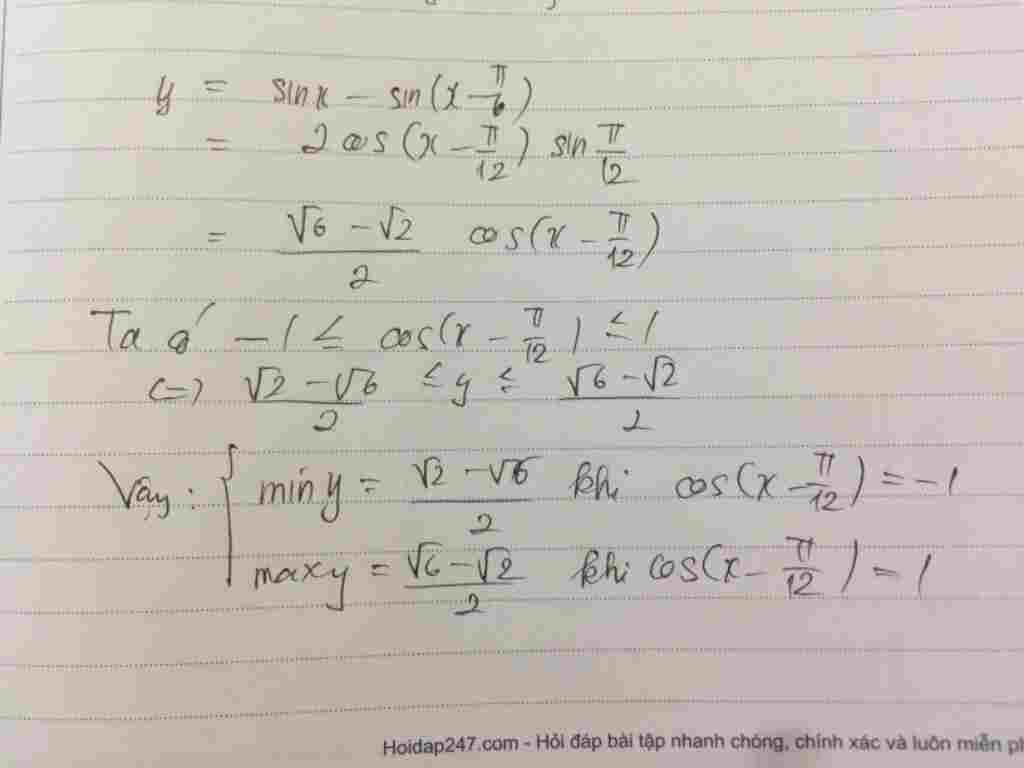 y = sinx - sin(x - π/6)
= 2 cos(x - π/12) sin π/12
= (√6 - √2)/2 cos(x - π/12)
Ta có -1 ≤ cos(x - π/12) ≤ 1
(-) (√2 - √6)/2 ≤ y ≤ (√6 - √2)/2
Vậy: { min y = (√2 - √6)/2 khi cos(x - π/12) = -1
max y = (√6 - √2)/2 khi cos(x - π/12) = 1
Hoidap247.com - Hỏi đáp bài tập nhanh chóng, chính xác và luôn miễn ph